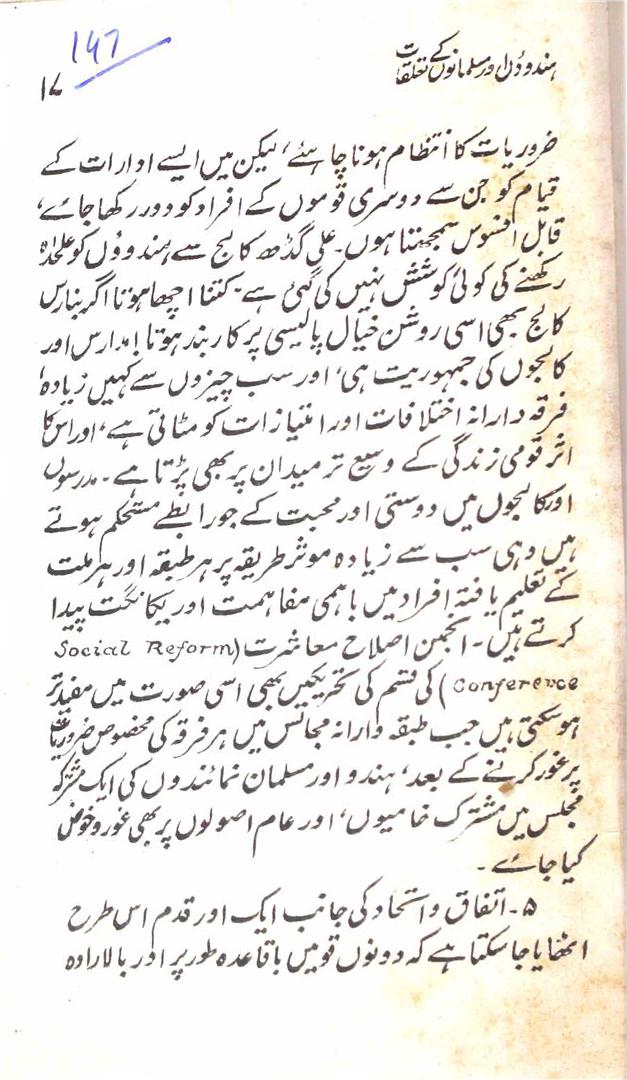 147
ہندوؤں اور مسلمانوں کے تعلقات
۱۷
ضروریات کا انتظام ہونا چاہئے، لیکن میں ایسے ادارات کے
قیام کو جن سے دوسری قوموں کے افراد کو دور رکھا جائے،
قابل افسوس سمجھتا ہوں۔ علی گڈھ کالج سے ہندوؤں کو علحدہ
رکھنے کی کوئی کوشش نہیں کی گئی ہے۔ کتنا اچھا ہوتا اگر بنارس
کالج بھی اسی روشن خیال پالیسی پر کاربند ہوتا! مدارس اور
کالجوں کی جمہوریت ہی، اور سب چیزوں سے کہیں زیادہ،
فرقہ دارانہ اختلافات اور امتیازات کو مٹاتی ہے، اور اس کا
اثر قومی زندگی کے وسیع تر میدان پر بھی پڑتا ہے۔ مدرسوں
اور کالجوں میں دوستی اور محبت کے جو رابطے مستحکم ہوتے
ہیں وہی سب سے زیادہ موثر طریقہ پر ہر طبقہ اور ہر ملت
کے تعلیم یافتہ افراد میں باہمی مفاہمت اور یگانگت پیدا
کرتے ہیں۔ انجمن اصلاح معاشرت (Social Reform
Conference) کی قسم کی تحریکیں بھی اسی صورت میں مفید تر
ہوسکتی ہیں جب طبقہ وارانہ مجالس میں ہر فرقہ کی مخصوص ضروریات
پر غور کرنے کے بعد، ہندو اور مسلمان نمائندوں کی ایک مشترکہ
مجلس میں مشترک خامیوں، اور عام اصولوں پر بھی غور و خوض
کیا جائے۔
۵۔ اتفاق و اتحاد کی جانب ایک اور قدم اس طرح
اٹھایا جاسکتا ہے کہ دونوں قومیں باقاعدہ طور پر اور بالارادہ